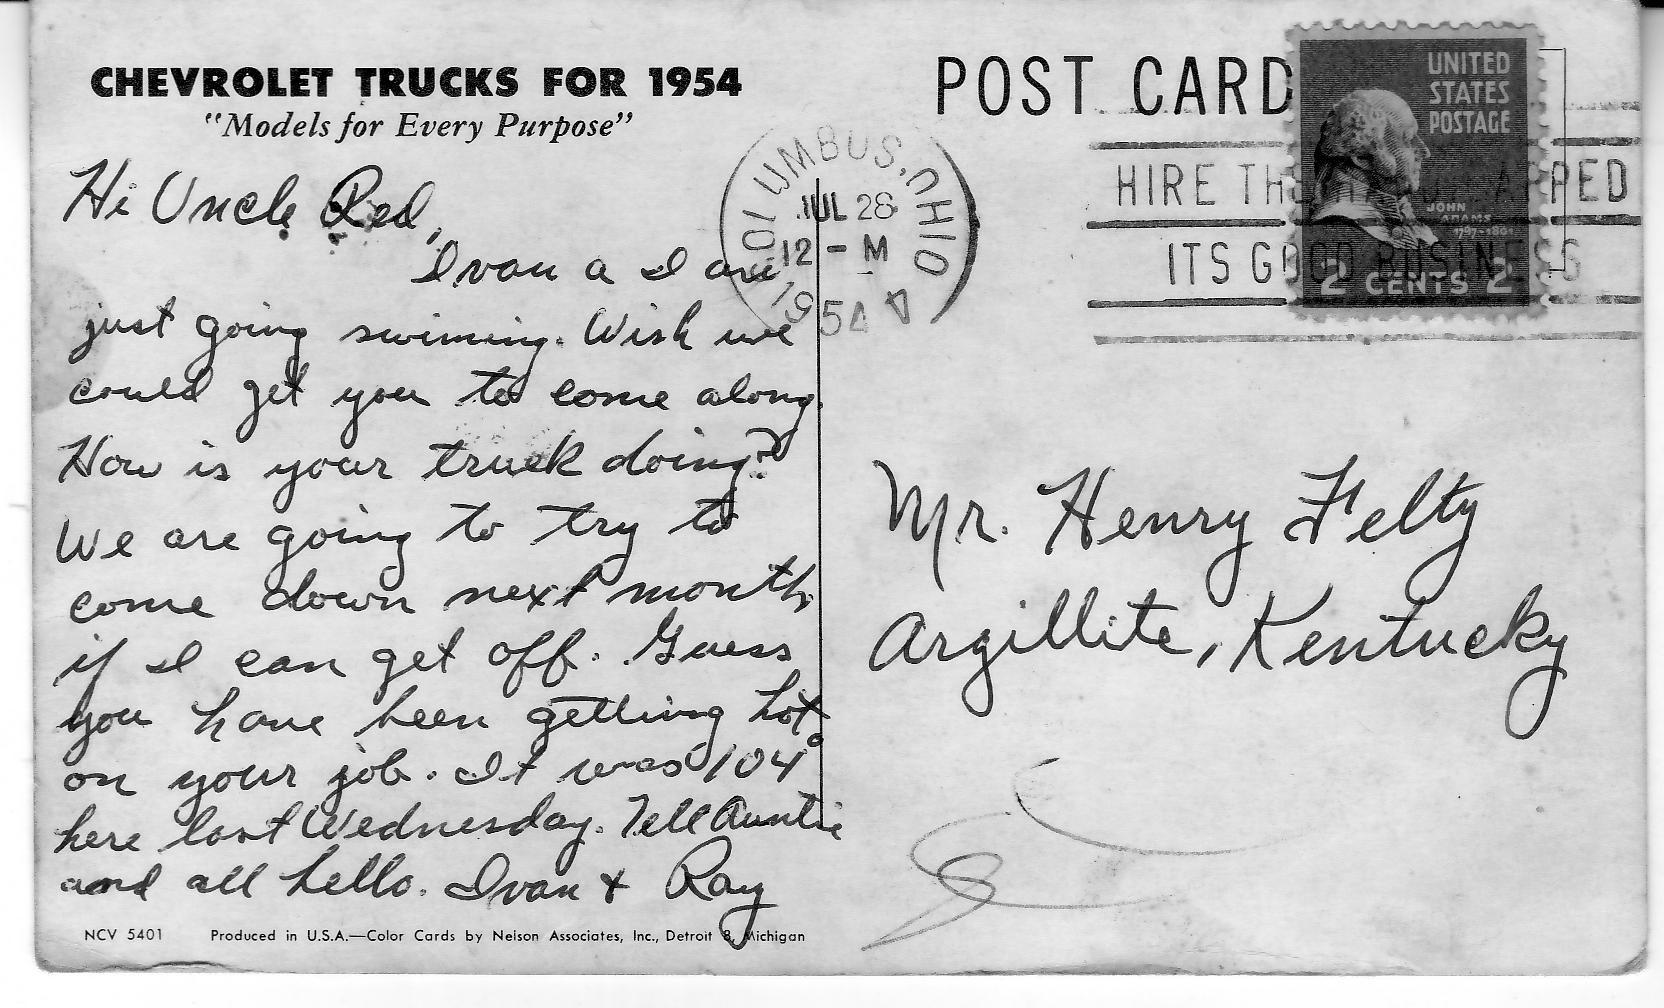 CHEVROLET TRUCKS FOR 1954
"Models for Every Purpose"
Hi Uncle Red,
Ivan a I are
just going swimming. Wish we
could get you to come along.
How is your truck doing?
We are going to try to
come down next month
if I can get off. Guess
you have been getting hot
on your job. It was 104°
here last Wednesday. Tell Auntie
and all hello. Ivan + Ray
NCV 5401 Produced in U.S.A.—Color Cards by Neison Associates, Inc., Detroit 8, Michigan
POST CARD
COLUMBUS, OHIO
JUL 28
12 - M
1954
HIRE TH APPED
ITS GOOD BUSINESS
UNITED
STATES
POSTAGE
JOHN
ADAMS
1797-1801
2 CENTS 2
Mr. Henry Felty
Argillite, Kentucky